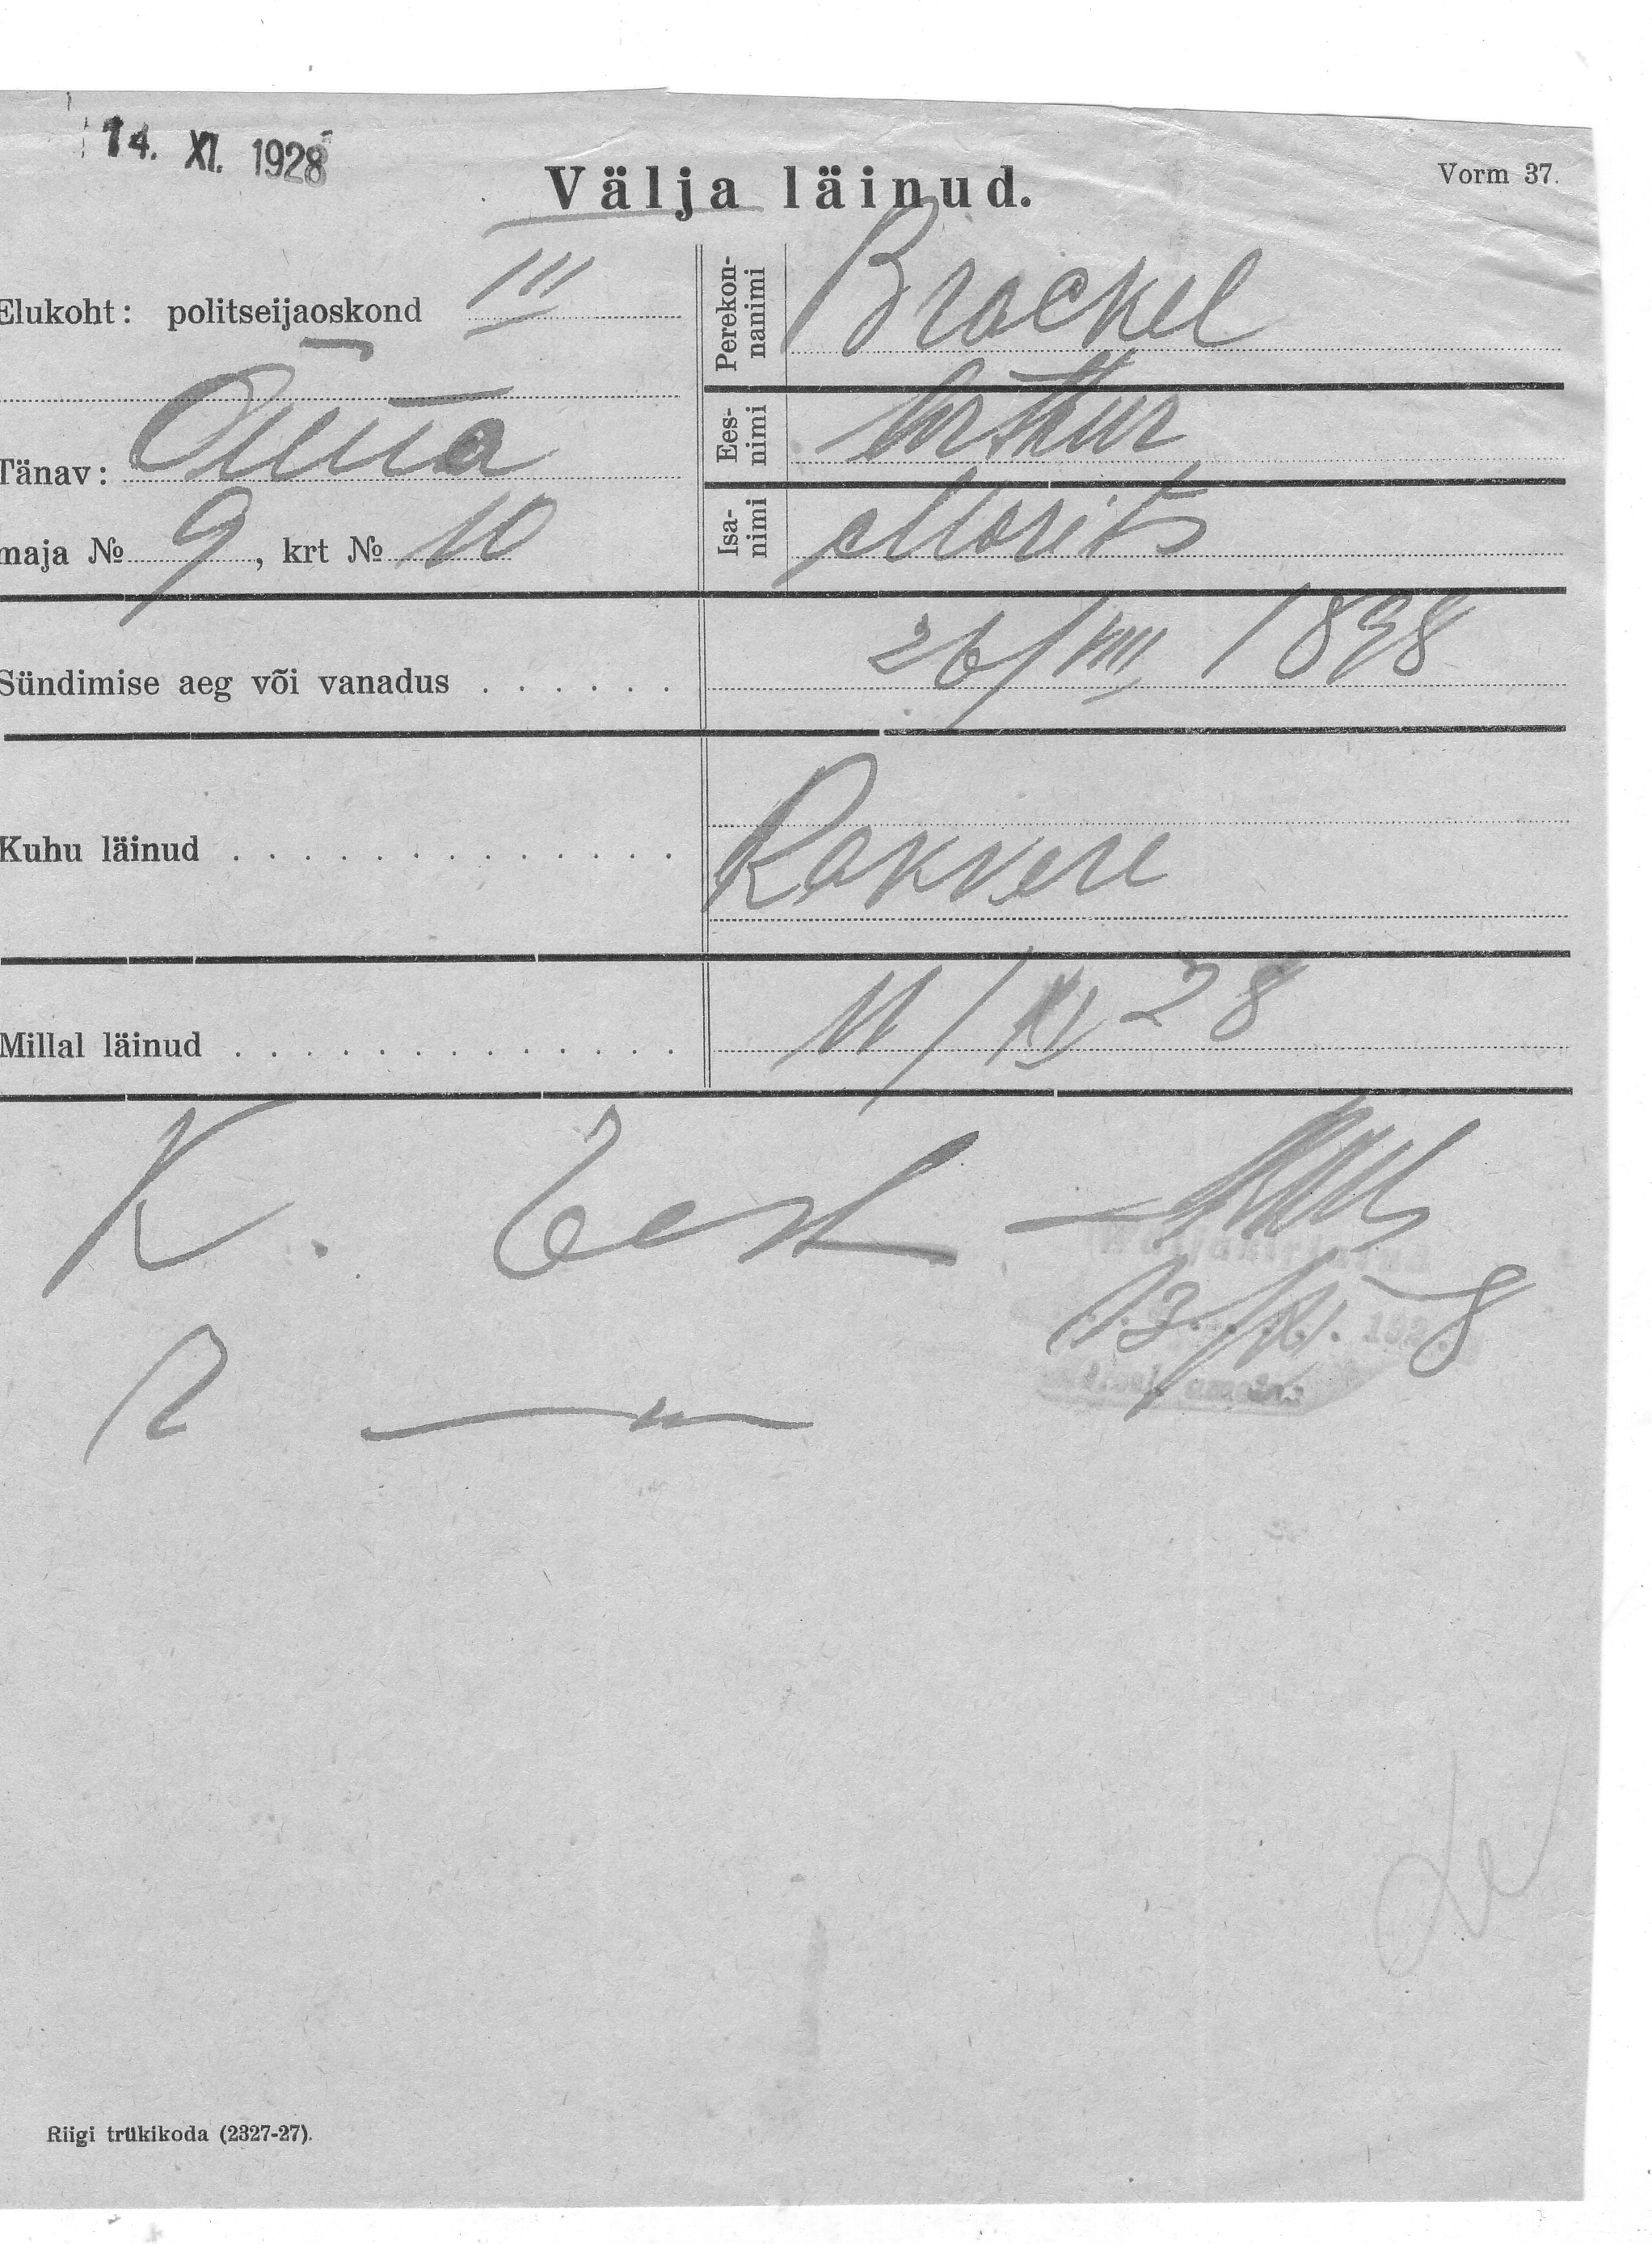 14. XI. 1928
Välja läinud.
Vorm 37.
Elukoht: politseijaoskond III
Tänav:
maja № 9, krt № 10
Perekon-
nanimi Brackel
Ees-
nimi Arthur
Isa-
nimi Morits
Sündimise aeg või vanadus . . . . . . 26/VIII 1898
Kuhu läinud . . . . . . . . . . . . . . Rakvere
Millal läinud . . . . . . . . . . . . . . 11/XI 28
K. Eest
13/XI 8
R — " —
Riigi trükikoda (2327-27).